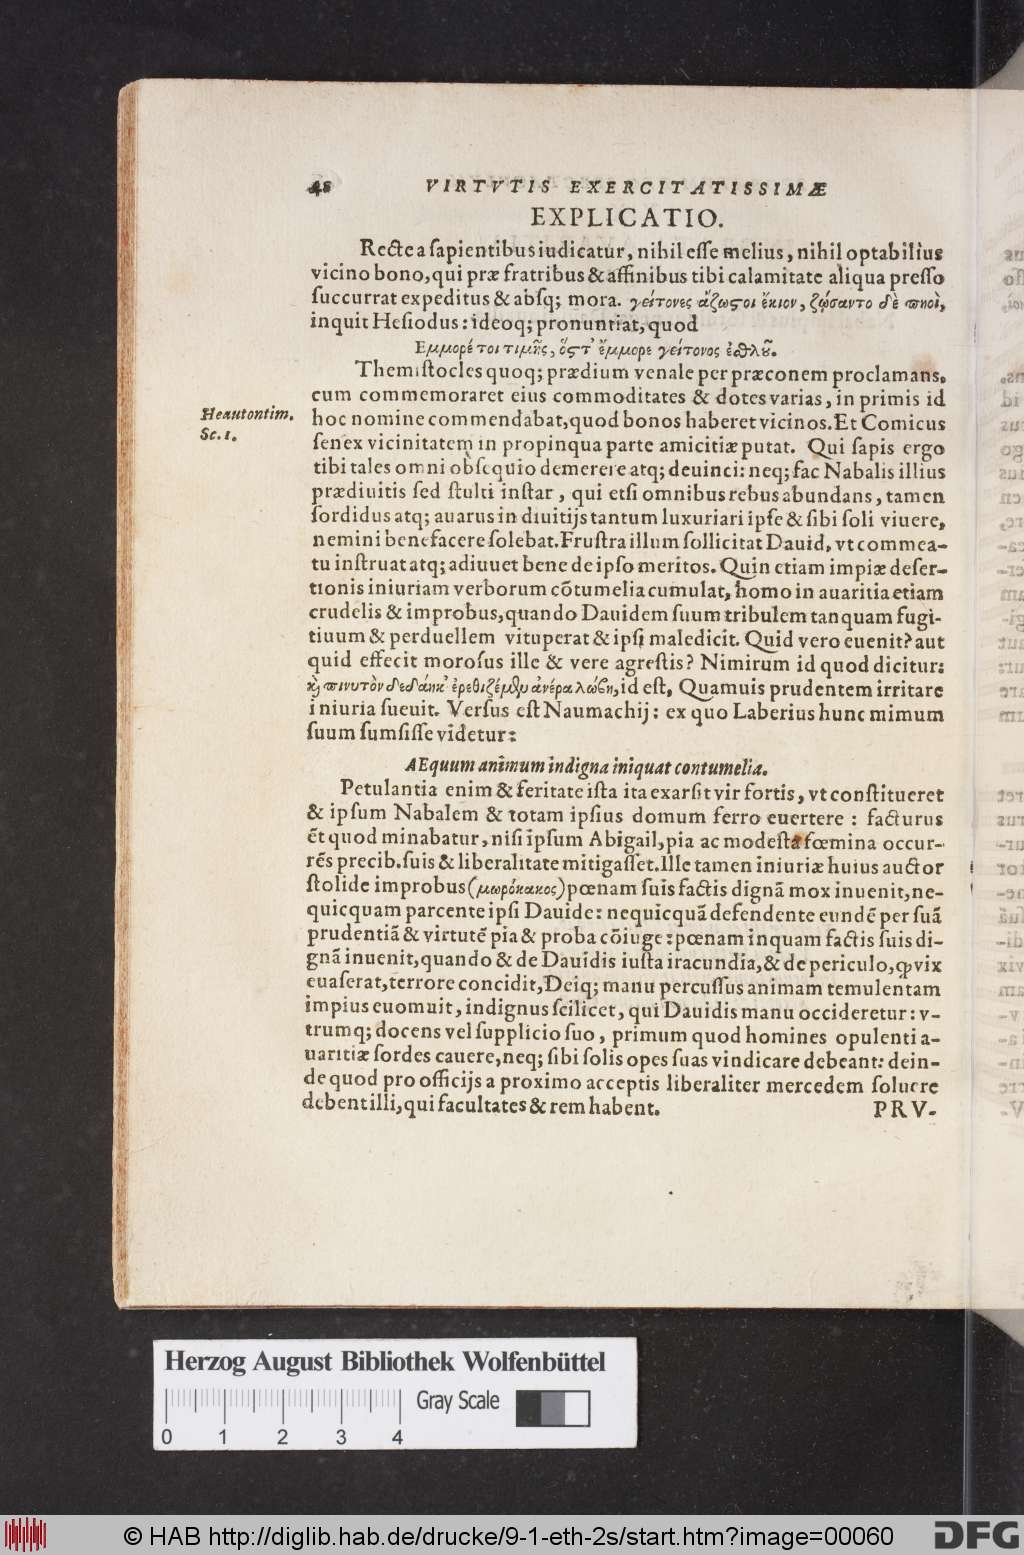 48 VIRTVTIS EXERCITATISSIMÆ
EXPLICATIO.
Recte a sapientibus iudicatur, nihil esse melius, nihil optabilius
vicino bono, qui præ fratribus & affinibus tibi calamitate aliqua presso
succurrat expeditus & absq; mora. γείτονες ἄζωστοι ἔκιον, ζώσαντο δὲ πηοὶ,
inquit Hesiodus: ideoq; pronuntiat, quod
Εμμορέ τοι τιμῆς, ὅςτ' ἔμμορε γείτονος ἐσθλοῦ.
Themistocles quoq; prædium venale per præconem proclamans,
cum commemoraret eius commoditates & dotes varias, in primis id
Heautontim.
Sc. 1.
hoc nomine commendabat, quod bonos haberet vicinos. Et Comicus
senex vicinitatem in propinqua parte amicitiæ putat. Qui sapis ergo
tibi tales omni obsequio demerere atq; deuinci: neq; fac Nabalis illius
prædiuitis sed stulti instar, qui etsi omnibus rebus abundans, tamen
sordidus atq; auarus in diuitijs tantum luxuriari ipse & sibi soli viuere,
nemini benefacere solebat. Frustra illum sollicitat Dauid, vt commea-
tu instruat atq; adiuuet bene de ipso meritos. Quin etiam impiæ deser-
tionis iniuriam verborum cõtumelia cumulat, homo in auaritia etiam
crudelis & improbus, quando Dauidem suum tribulem tanquam fugi-
tiuum & perduellem vituperat & ipsi maledicit. Quid vero euenit? aut
quid effecit morosus ille & vere agrestis? Nimirum id quod dicitur:
κỳ πινυτὸν δεδάηκ' ἐρεθιζέμϑυ ἀνέρα λώβη, id est, Quamuis prudentem irritare
iniuria sueuit. Versus est Naumachij: ex quo Laberius hunc mimum
suum sumsisse videtur:
AEquum animum indigna iniquat contumelia.
Petulantia enim & feritate ista ita exarsit vir fortis, vt constitueret
& ipsum Nabalem & totam ipsius domum ferro euertere: facturus
ẽt quod minabatur, nisi ipsum Abigail, pia ac modesta fœmina occur-
rẽs precib. suis & liberalitate mitigasset. Ille tamen iniuriæ huius auctor
stolide improbus (μωρόκακος) pœnam suis factis dignã mox inuenit, ne-
quicquam parcente ipsi Dauide: nequicquã defendente eundẽ per suã
prudentiã & virtutẽ pia & proba cõiuge: pœnam inquam factis suis di-
gnã inuenit, quando & de Dauidis iusta iracundia, & de periculo, ꝙ vix
euaserat, terrore concidit, Deiq; manu percussus animam temulentam
impius euomuit, indignus scilicet, qui Dauidis manu occideretur: v-
trumq; docens vel supplicio suo, primum quod homines opulenti a-
uaritiæ sordes cauere, neq; sibi solis opes suas vindicare debeant: dein-
de quod pro officijs a proximo acceptis liberaliter mercedem soluere
debent illi, qui facultates & rem habent.
PRV-
Herzog August Bibliothek Wolfenbüttel
0 1 2 3 4 Gray Scale
© HAB http://diglib.hab.de/drucke/9-1-eth-2s/start.htm?image=00060
DFG